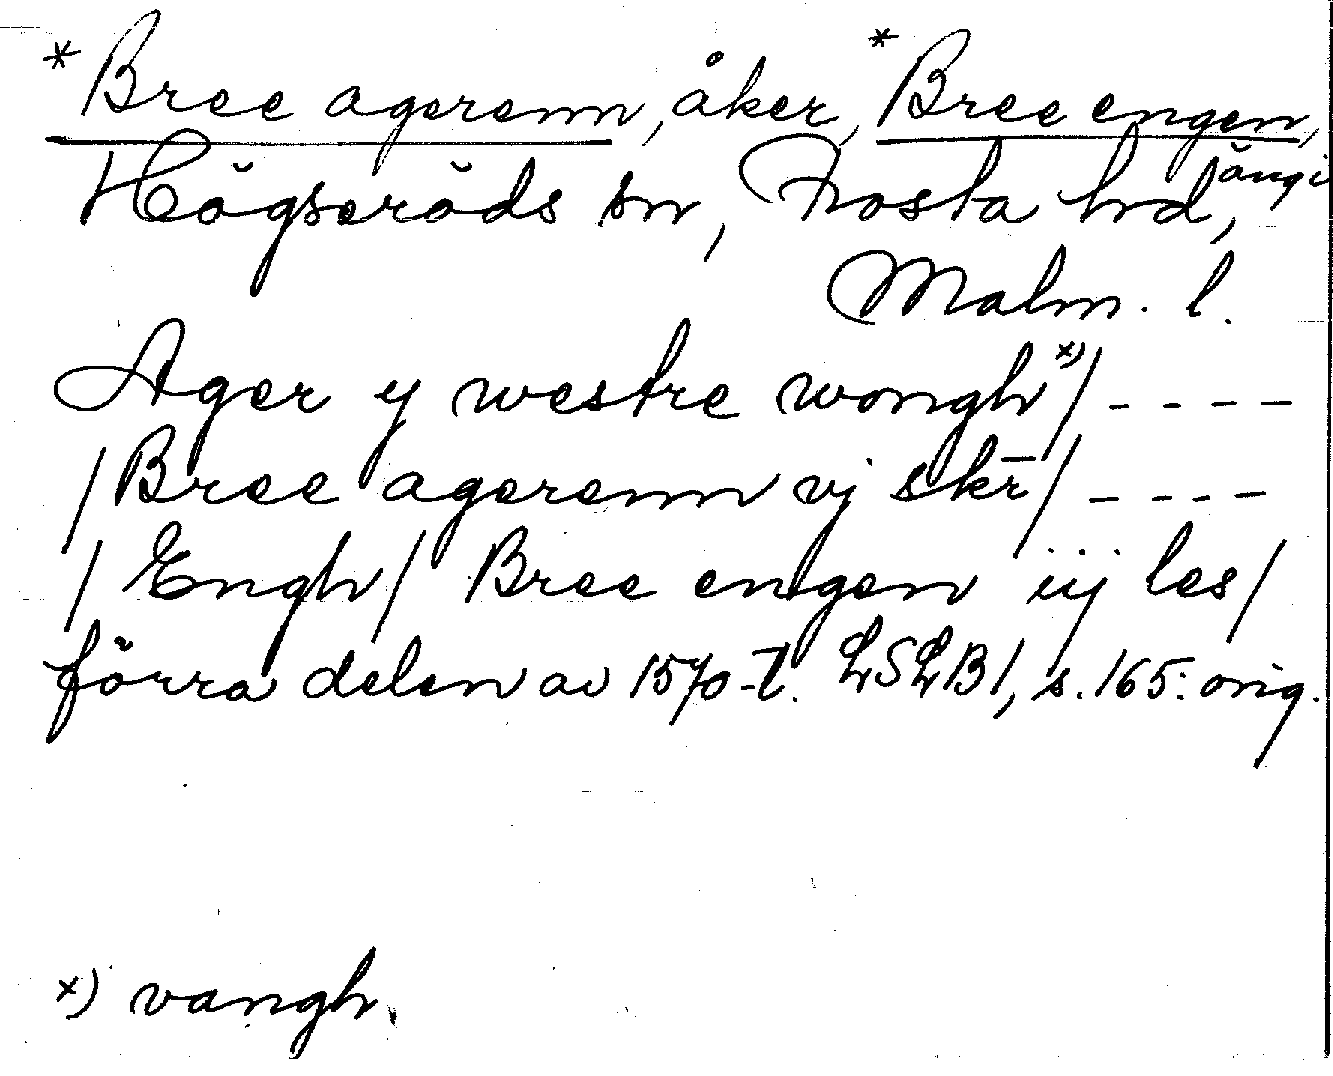 *Bree agerenn, åker, *Bree engen,
äng i
Högseröds sn, Frosta hd,
Malm. l.
Ager y westre wongh x)/ - - - -
/Bree agerenn vj skr̄/ - - - -
/Engh/ Bree engen iij les/
förra delen av 1570-t. LSLB1, s. 165. orig.
x) vangh.